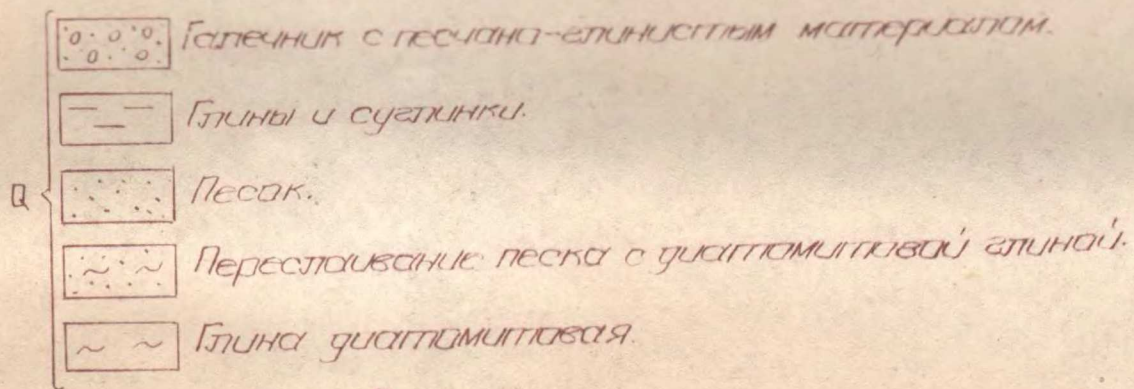 Галечник с песчано-глинистым материалом.
Глины и суглинки.
Q
Песок.
Переслаивание песка с диатомитовой глиной.
Глина диатомитовая.